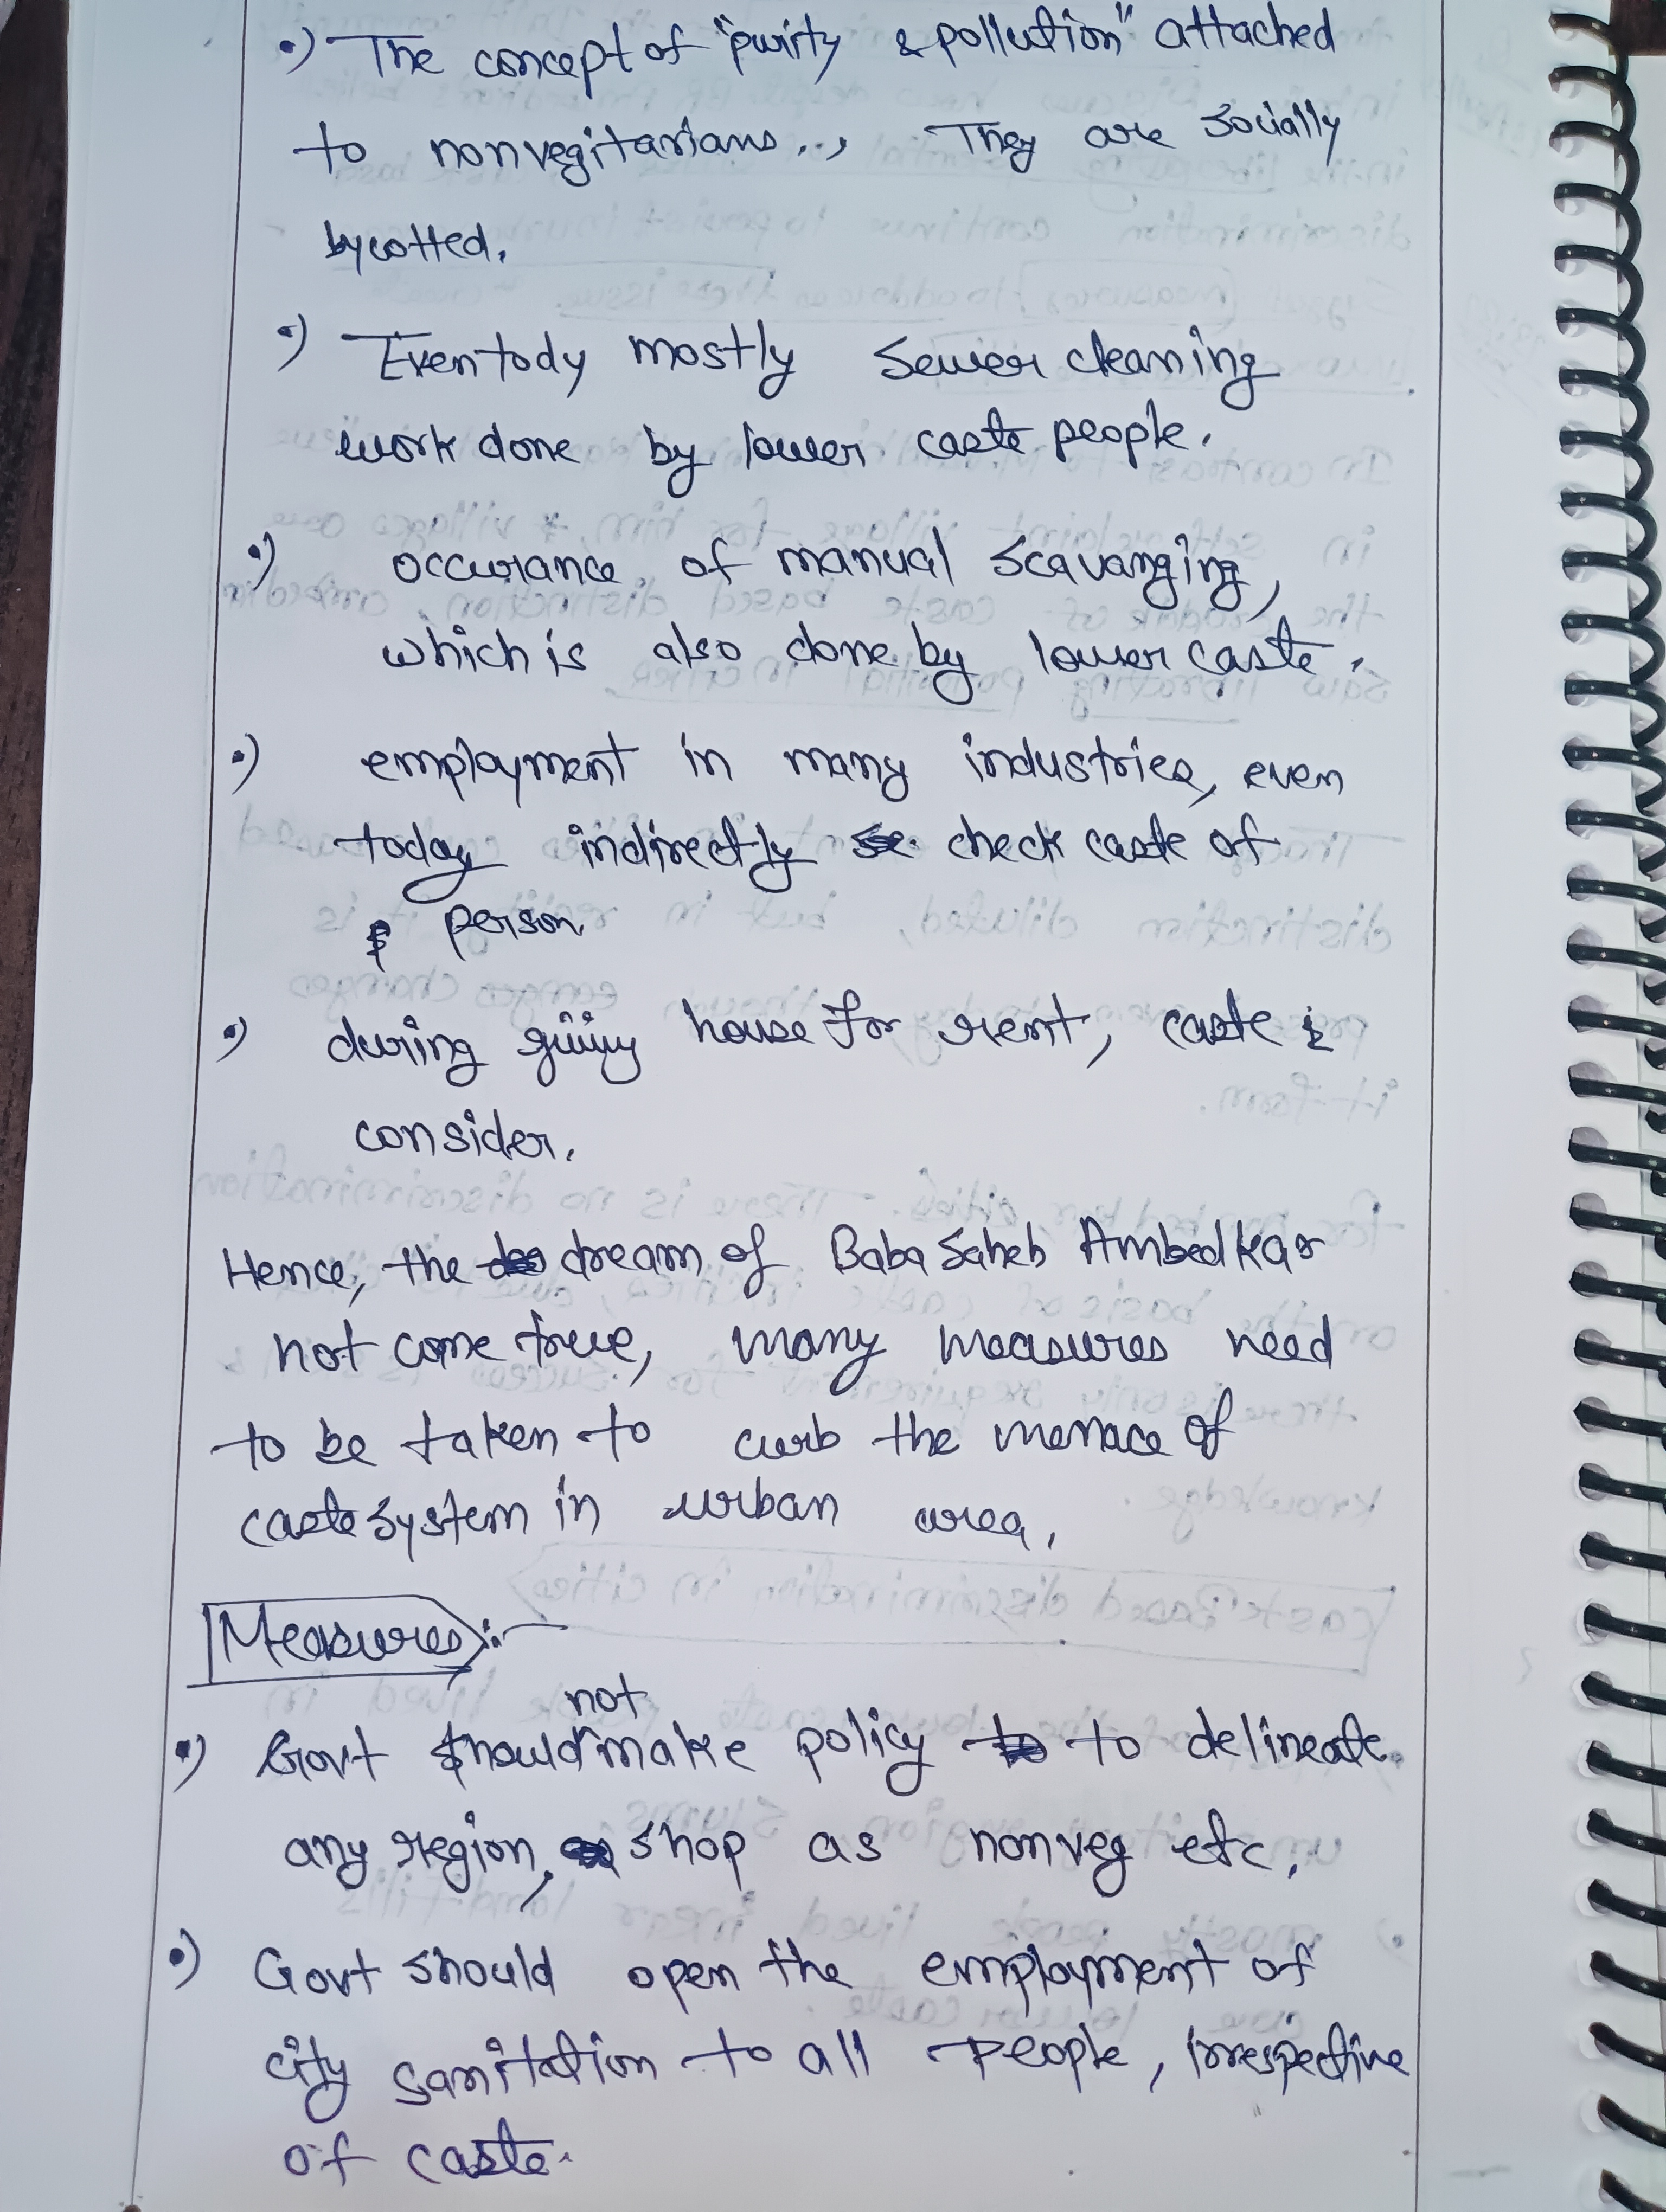 •) The concept of "purity & pollution" attached
to nonvegitarians.., They are socially
bycotted.
•) Even tody mostly sewer cleaning
work done by lower caste people.
•) occurance of manual scavanging,
which is also done by lower caste.
•) employment in many industries, even
today indirectly check caste of
person.
•) during giving house for rent, caste is
consider.
Hence, the dream of Baba Saheb Ambedkar
not come true, many measures need
to be taken to curb the menace of
caste system in urban area.
Measures :-
not
•) Govt should make policy to delineate
any region, shop as nonveg etc.
•) Govt should open the employment of
city sanitation to all people, irrespective
of caste.